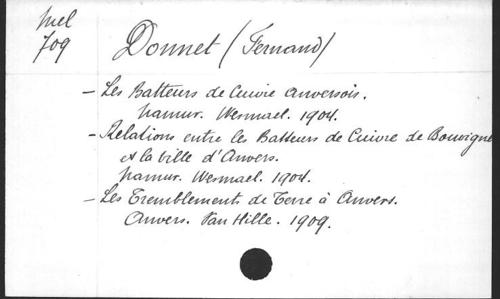 Mel
709
Donnet (Fernand)
- Les Batteurs de Cuivre Anversois.
Namur. Wesmael. 1904.
- Relations entre les Batteurs de Cuivre de Bouvigne
et la ville d'Anvers.
Namur. Wesmael. 1904.
- Les Tremblements de Terre à Anvers.
Anvers. Van Hille. 1909.